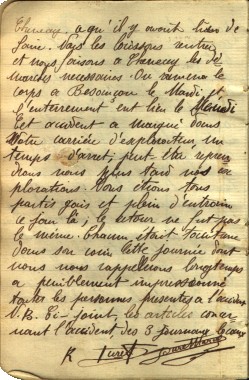 Thenecey, a qu'il y avait bien de
faire. Nous les laissons entrer
et nous faisons à Thenecey les dé
marches nécessaires. On ramena le
corps à Besançon le Mardi et
l'enterrement eut lieu le Mercredi
Cet accident a marqué dans
notre carrière d'explorateur un
temps d'arrêt; peut être repren
drons nous plus tard nos ex
plorations. Nous étions tous
partis gais et plein d'entrain
ce jour là; le retour ne fut pas
le même. Chacun était taciturne
dans son coin. Cette journée dont
nous nous rappellerons longtemps
a péniblement impressionné
toutes les personnes présentes à l'accident
N.B. Ci-joint, les articles concer
nant l'accident, des 3 journaux locaux